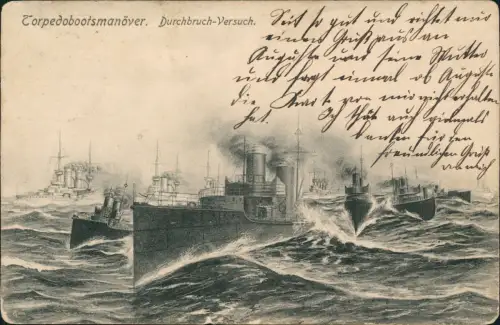 Torpedobootsmanöver. Durchbruch-Versuch.
Seit so gut und richtet mir
einen Gruß aus an
Auguste und seine Mutter
und sagt einmal ob Auguste
die Kart von mir nicht erhalten
hat. Ich auf
für den
freundlichen Gruß